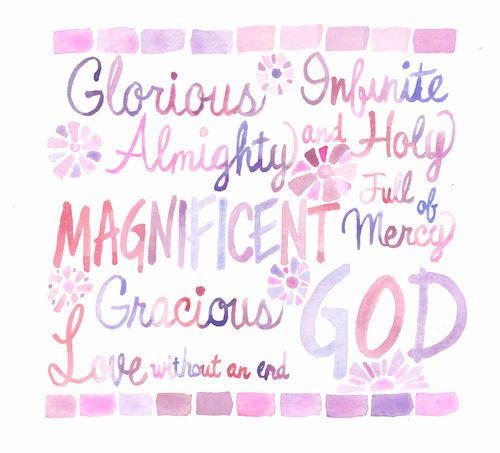 Glorious Infinite
Almighty and Holy
MAGNIFICENT Full of Mercy
Gracious
Love without an end
GOD